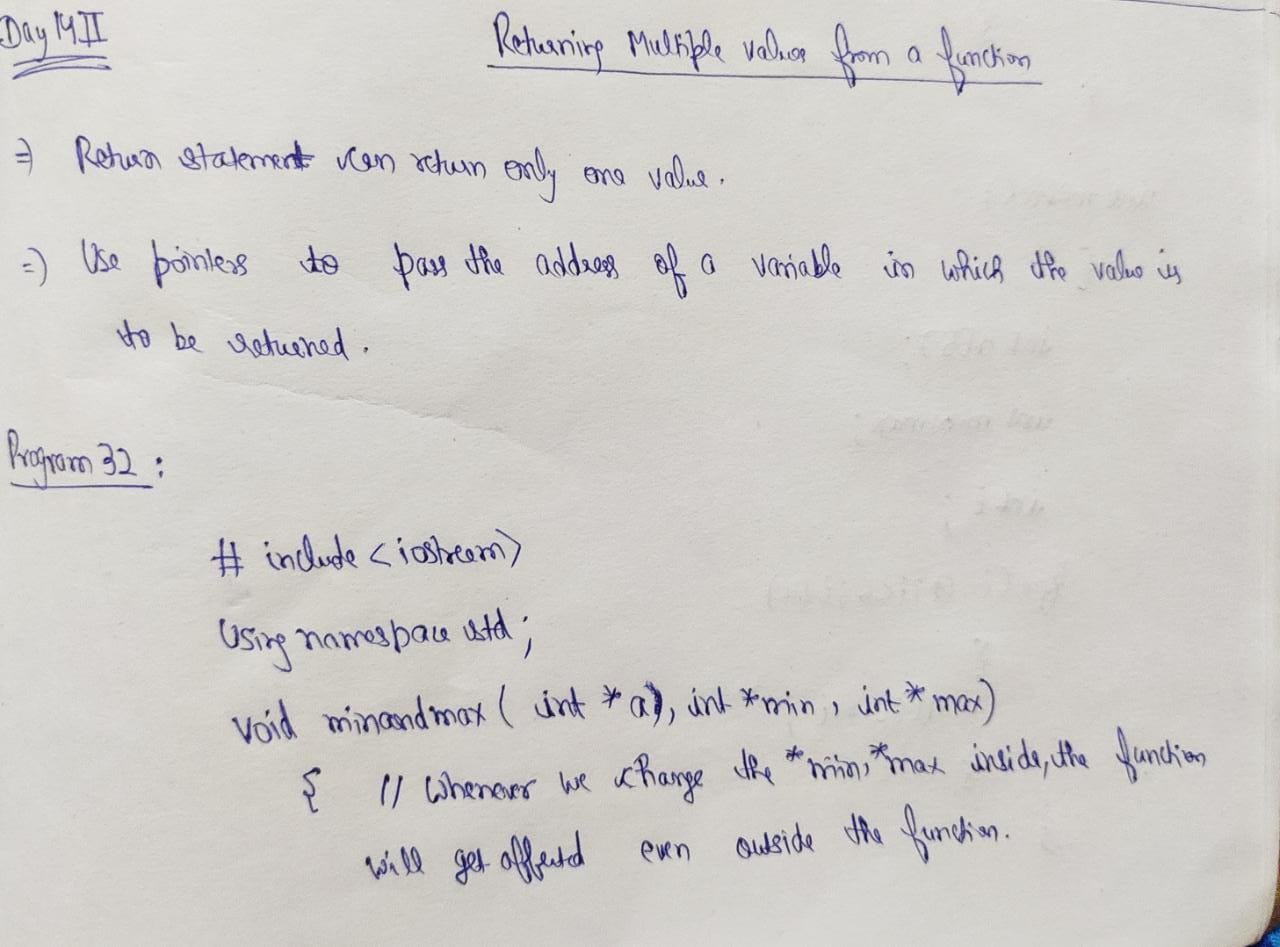 Day 14 II
Returning Multiple values from a function
⇒ Return statement can return only one value.
⇒ Use pointers to pass the address of a variable in which the value is
to be returned.
Program 32 :
# include <iostream>
Using namespace std;
Void minandmax ( int *a), int *min, int *max)
{ // Whenever we change the *min, *max inside, the function
will get affected even outside the function.